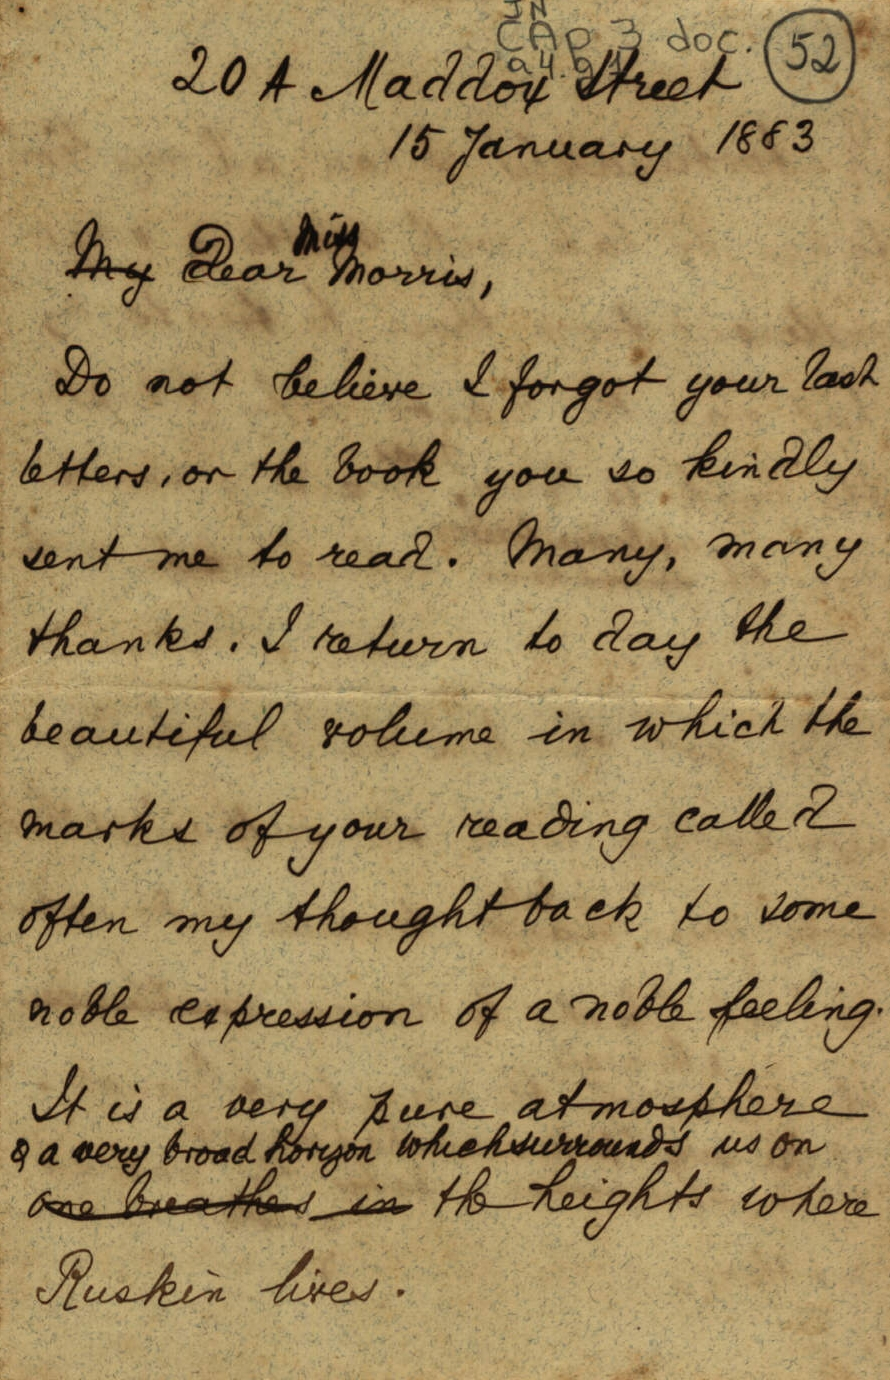 JN
CAp 3 doc.
52
20 A Maddox Street
15 January 1883
My Dear Miss Morris,
Do not believe I forgot your last
letters, or the book you so kindly
sent me to read. Many, many
thanks. I return to day the
beautiful volume in which the
marks of your reading called
often my thought back to some
noble expression of a noble feeling.
It is a very pure atmosphere
& a very broad horizon which surrounds us on
one breathes in the heights where
Ruskin lives.